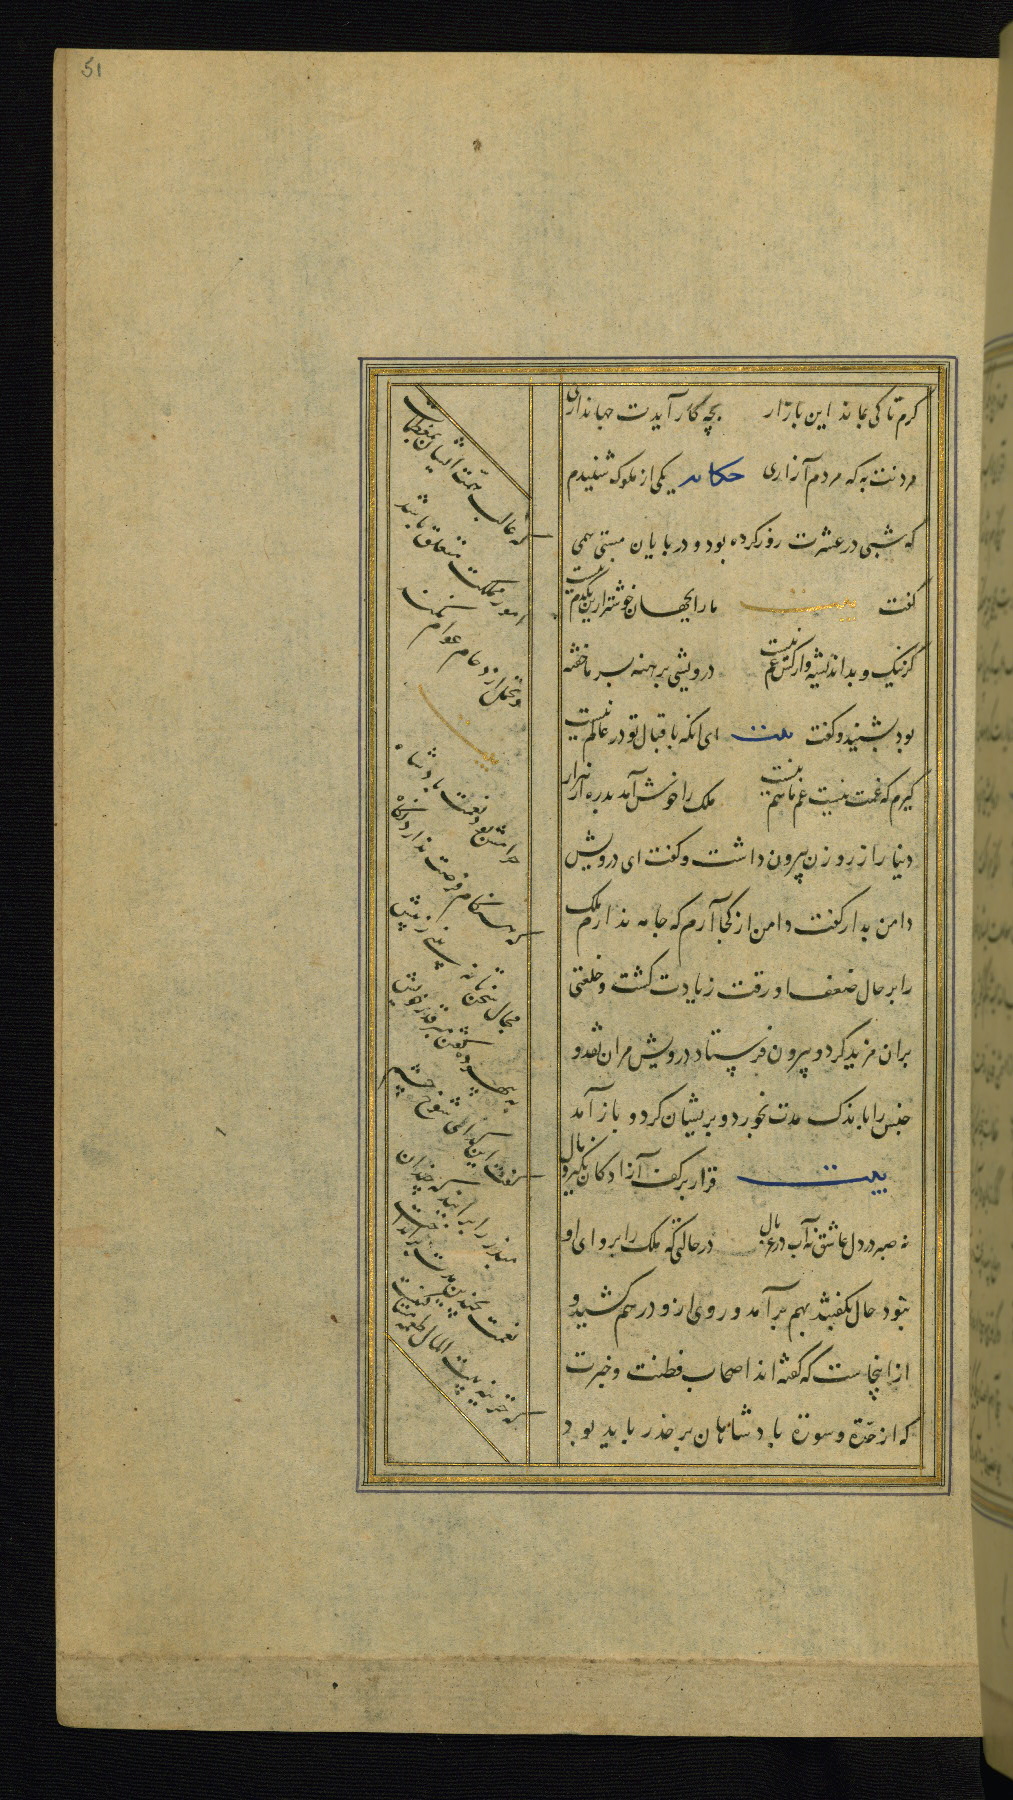 51
گرم تا کی بماند این بازار
بچه کار آیدت جهانداری
مردنت به که مردم آزاری حکایت یکی از ملوک شنیدم
که شبی در عشرت روز کرده بود و در پایان مستی همی
گفت بیت ما را بجهان خوشتر ازین یکدم نیست
کز نیک و بد اندیشه و از کس غم نیست درویشی برهنه بسرما خفته
بود بشنید و گفت بیت ای انکه باقبال تو در عالم نیست
گیرم که غمت نیست غم ما هم نیست ملک را خوش آمد بدره هزار
دینار از روزن بیرون داشت و گفت ای درویش
دامن بدار گفت دامن از کجا آرم که جامه ندارم ملک
را بر حال ضعف او رقت زیادت گشت و خلعتی
بران مزید کرد و بیرون فرستاد درویش مران نقد و
جنس را باندک مدت بخورد و پریشان کرد و باز آمد
بیت قرار بر کف آزادگان نگیرد مال
نه صبر در دل عاشق نه آب در غربال در حالتی که ملک را پروای او
نبود حال بگفتند بهم برآمد و روی ازو درهم کشید و
ازاینجاست که گفته اند اصحاب فطنت و خبرت
که از حدة و سورة پادشاهان بر حذر باید بود
که غالب همت ایشان بمعظمات
امور مملکت متعلق باشد
و تحمل ازدحام عوام نکند
بیت
حرامش بود نعمت پادشاه
که هنگام فرصت ندارد نگاه
مجال سخن تا نه بینی ز پیش
به بیهوده گفتن مبر قدر خویش
گفت این گدای شوخ چشم
مبذر را برانید که چندان
نعمت بچندین مدت برانداخت
که خزینه بیت المال لقمه